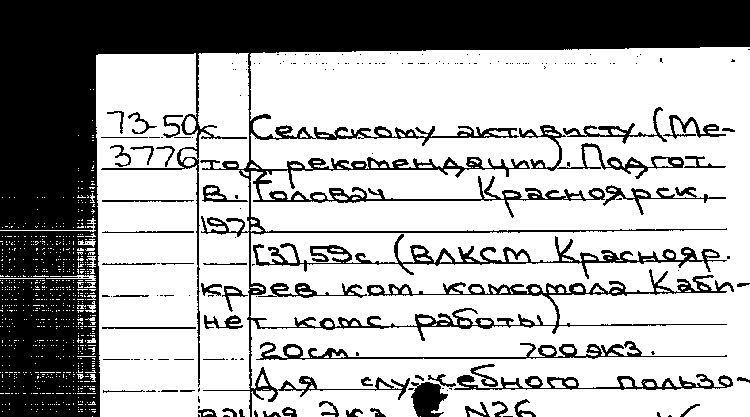 73-50к Сельскому активисту. (Ме-
3776 тод. рекомендации). Подгот.
В. Головач. Красноярск,
1973.
[3], 59с. (ВЛКСМ. Краснояр.
краев. ком. комсомола. Каби-
нет комс. работы).
20см. 700экз.
Для служебного пользо-
вания Экз. N26